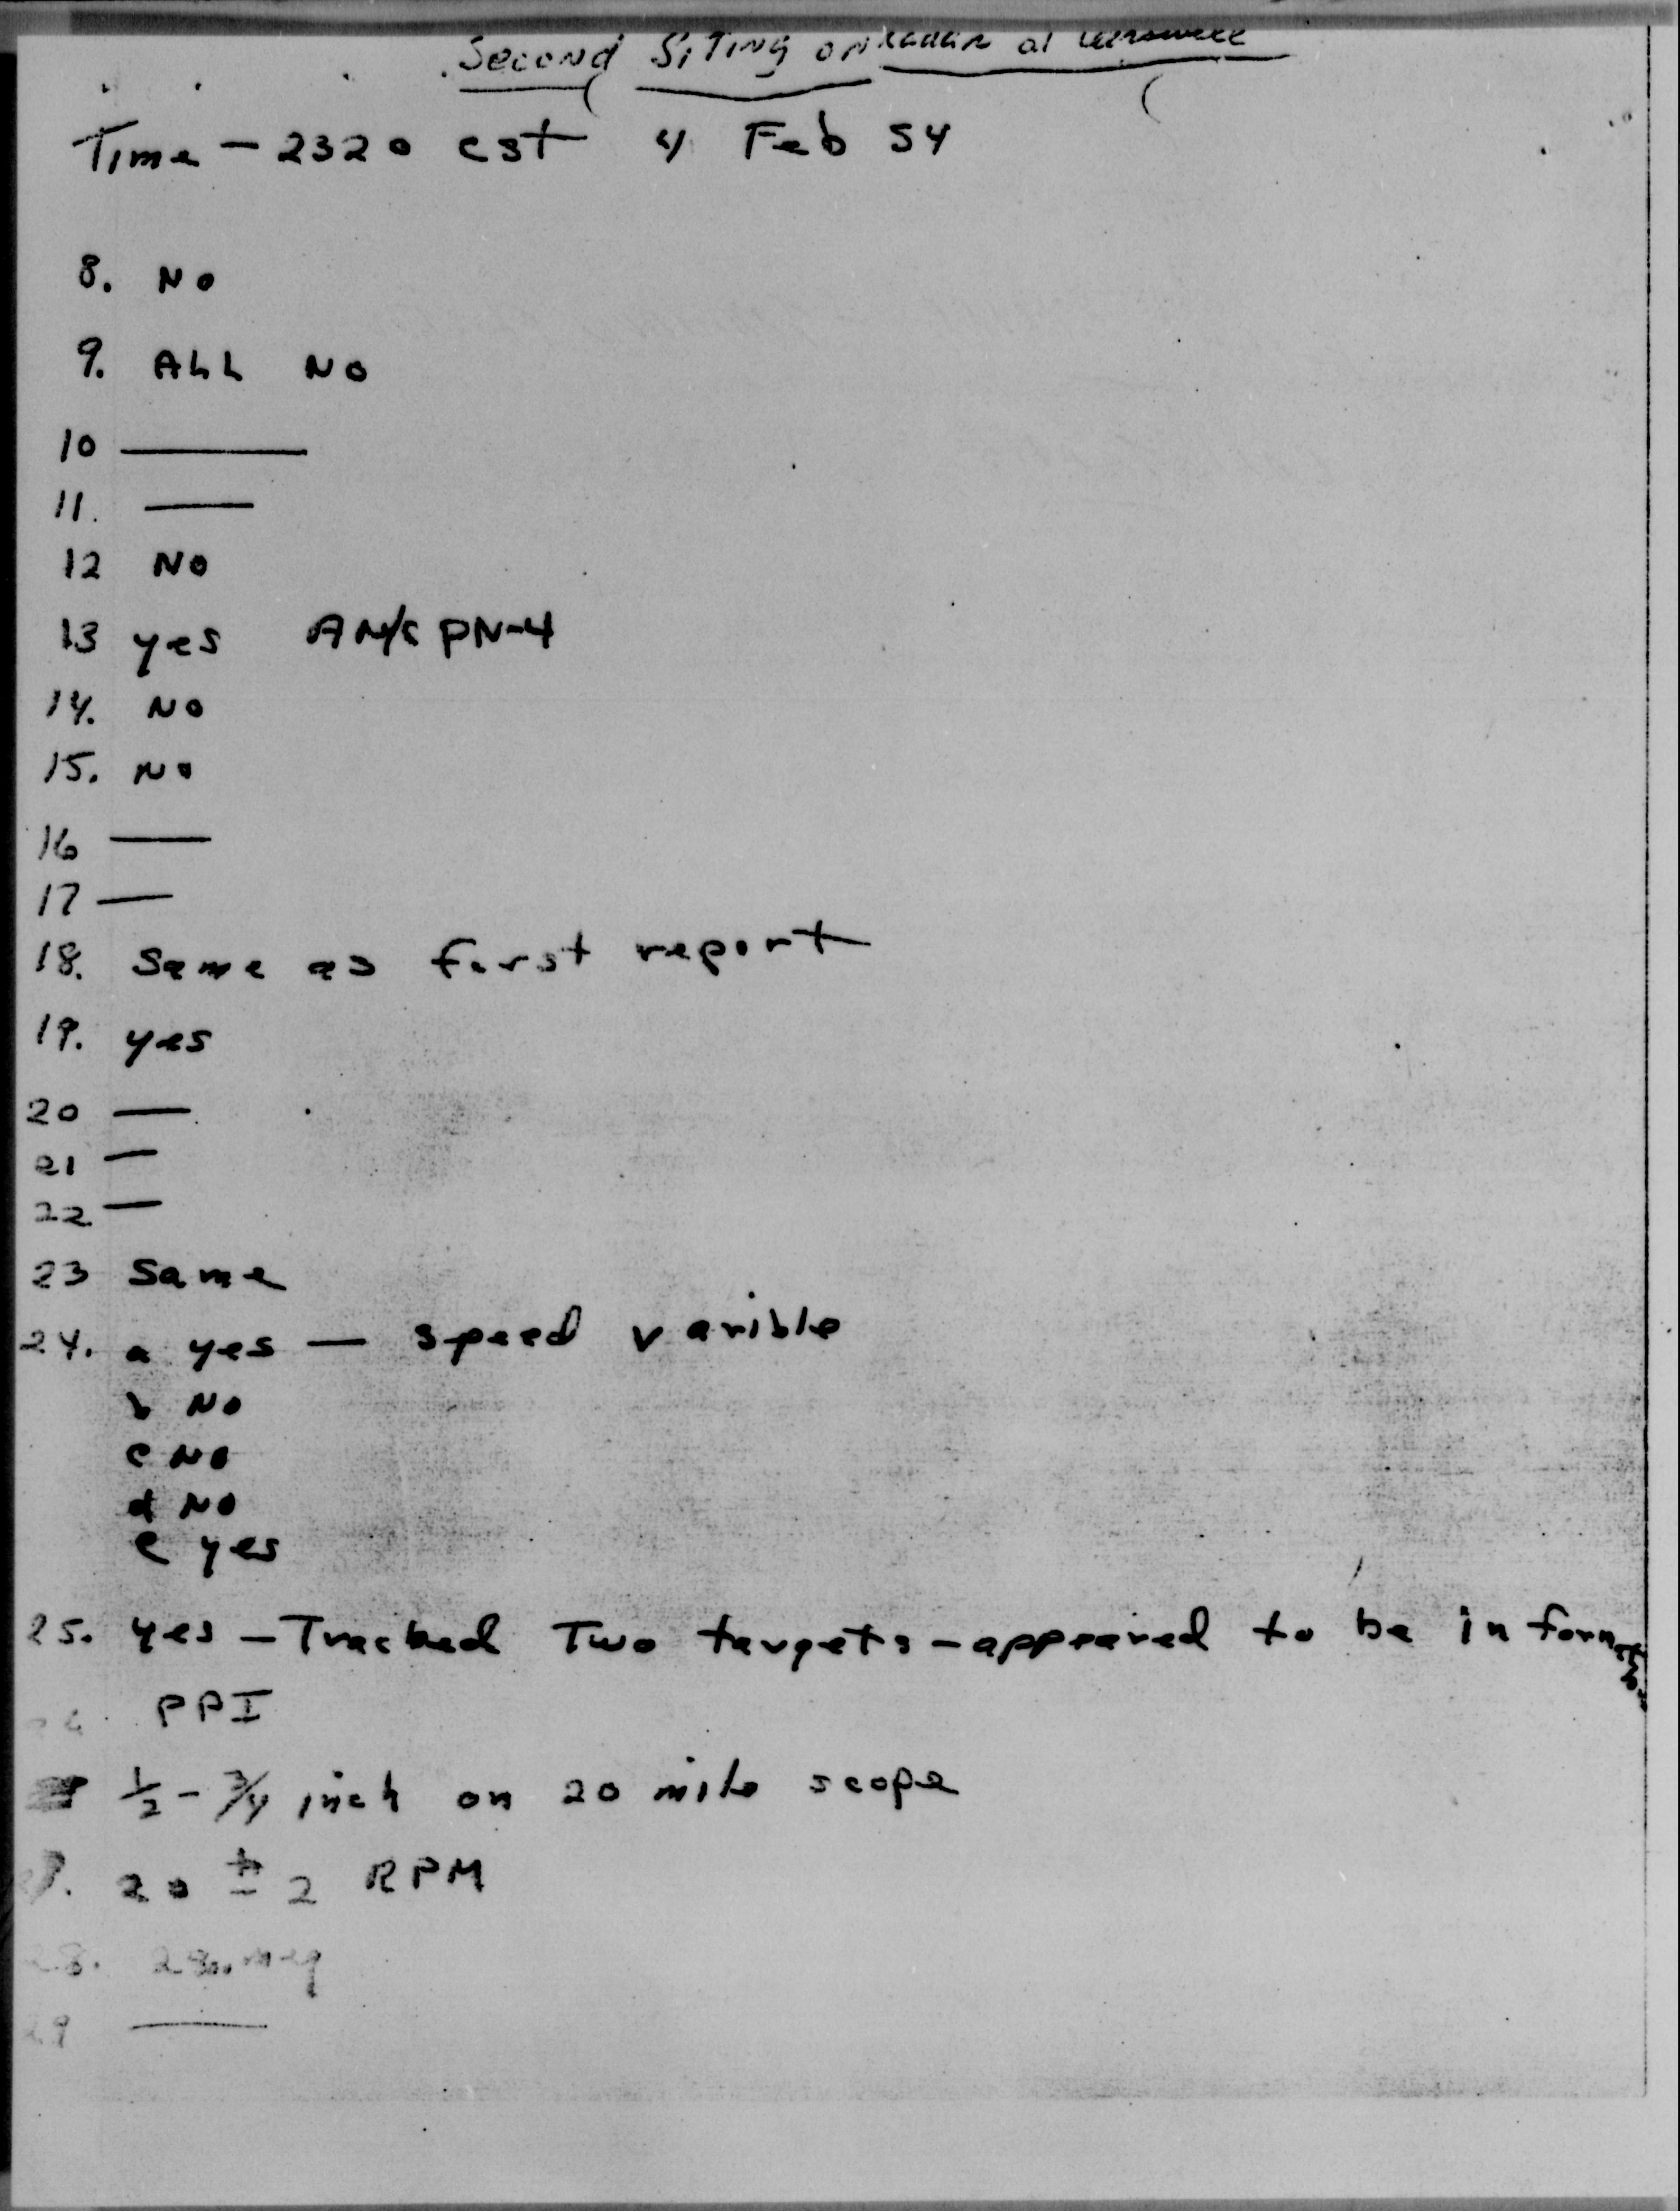 Second Siting on Radar at Carswell
Time - 2320 cst 4 Feb 54
8. No
9. ALL NO
10 —
11. —
12 NO
13 yes AN/CPN-4
14. NO
15. No
16 —
17 —
18. Same as first report
19. yes
20 —
21 —
22 —
23 Same
24. a yes — speed varible
b NO
c NO
d NO
e yes
25. yes - Tracked Two targets - appeared to be in formation
PPI
1/2 - 3/4 inch on 20 mile scope
20 ± 2 RPM
28. meg
29 —